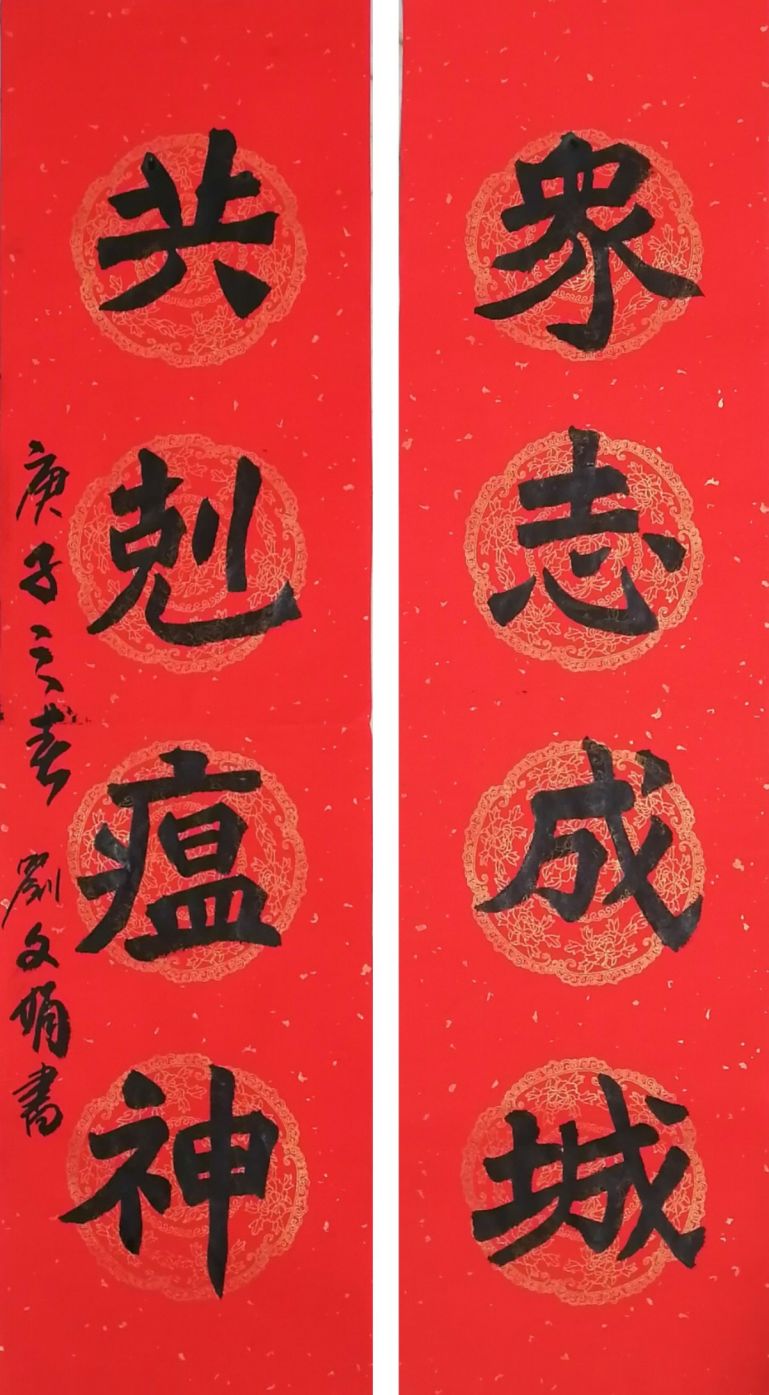 眾志成城
共剋瘟神
庚子之春 劉文娟書